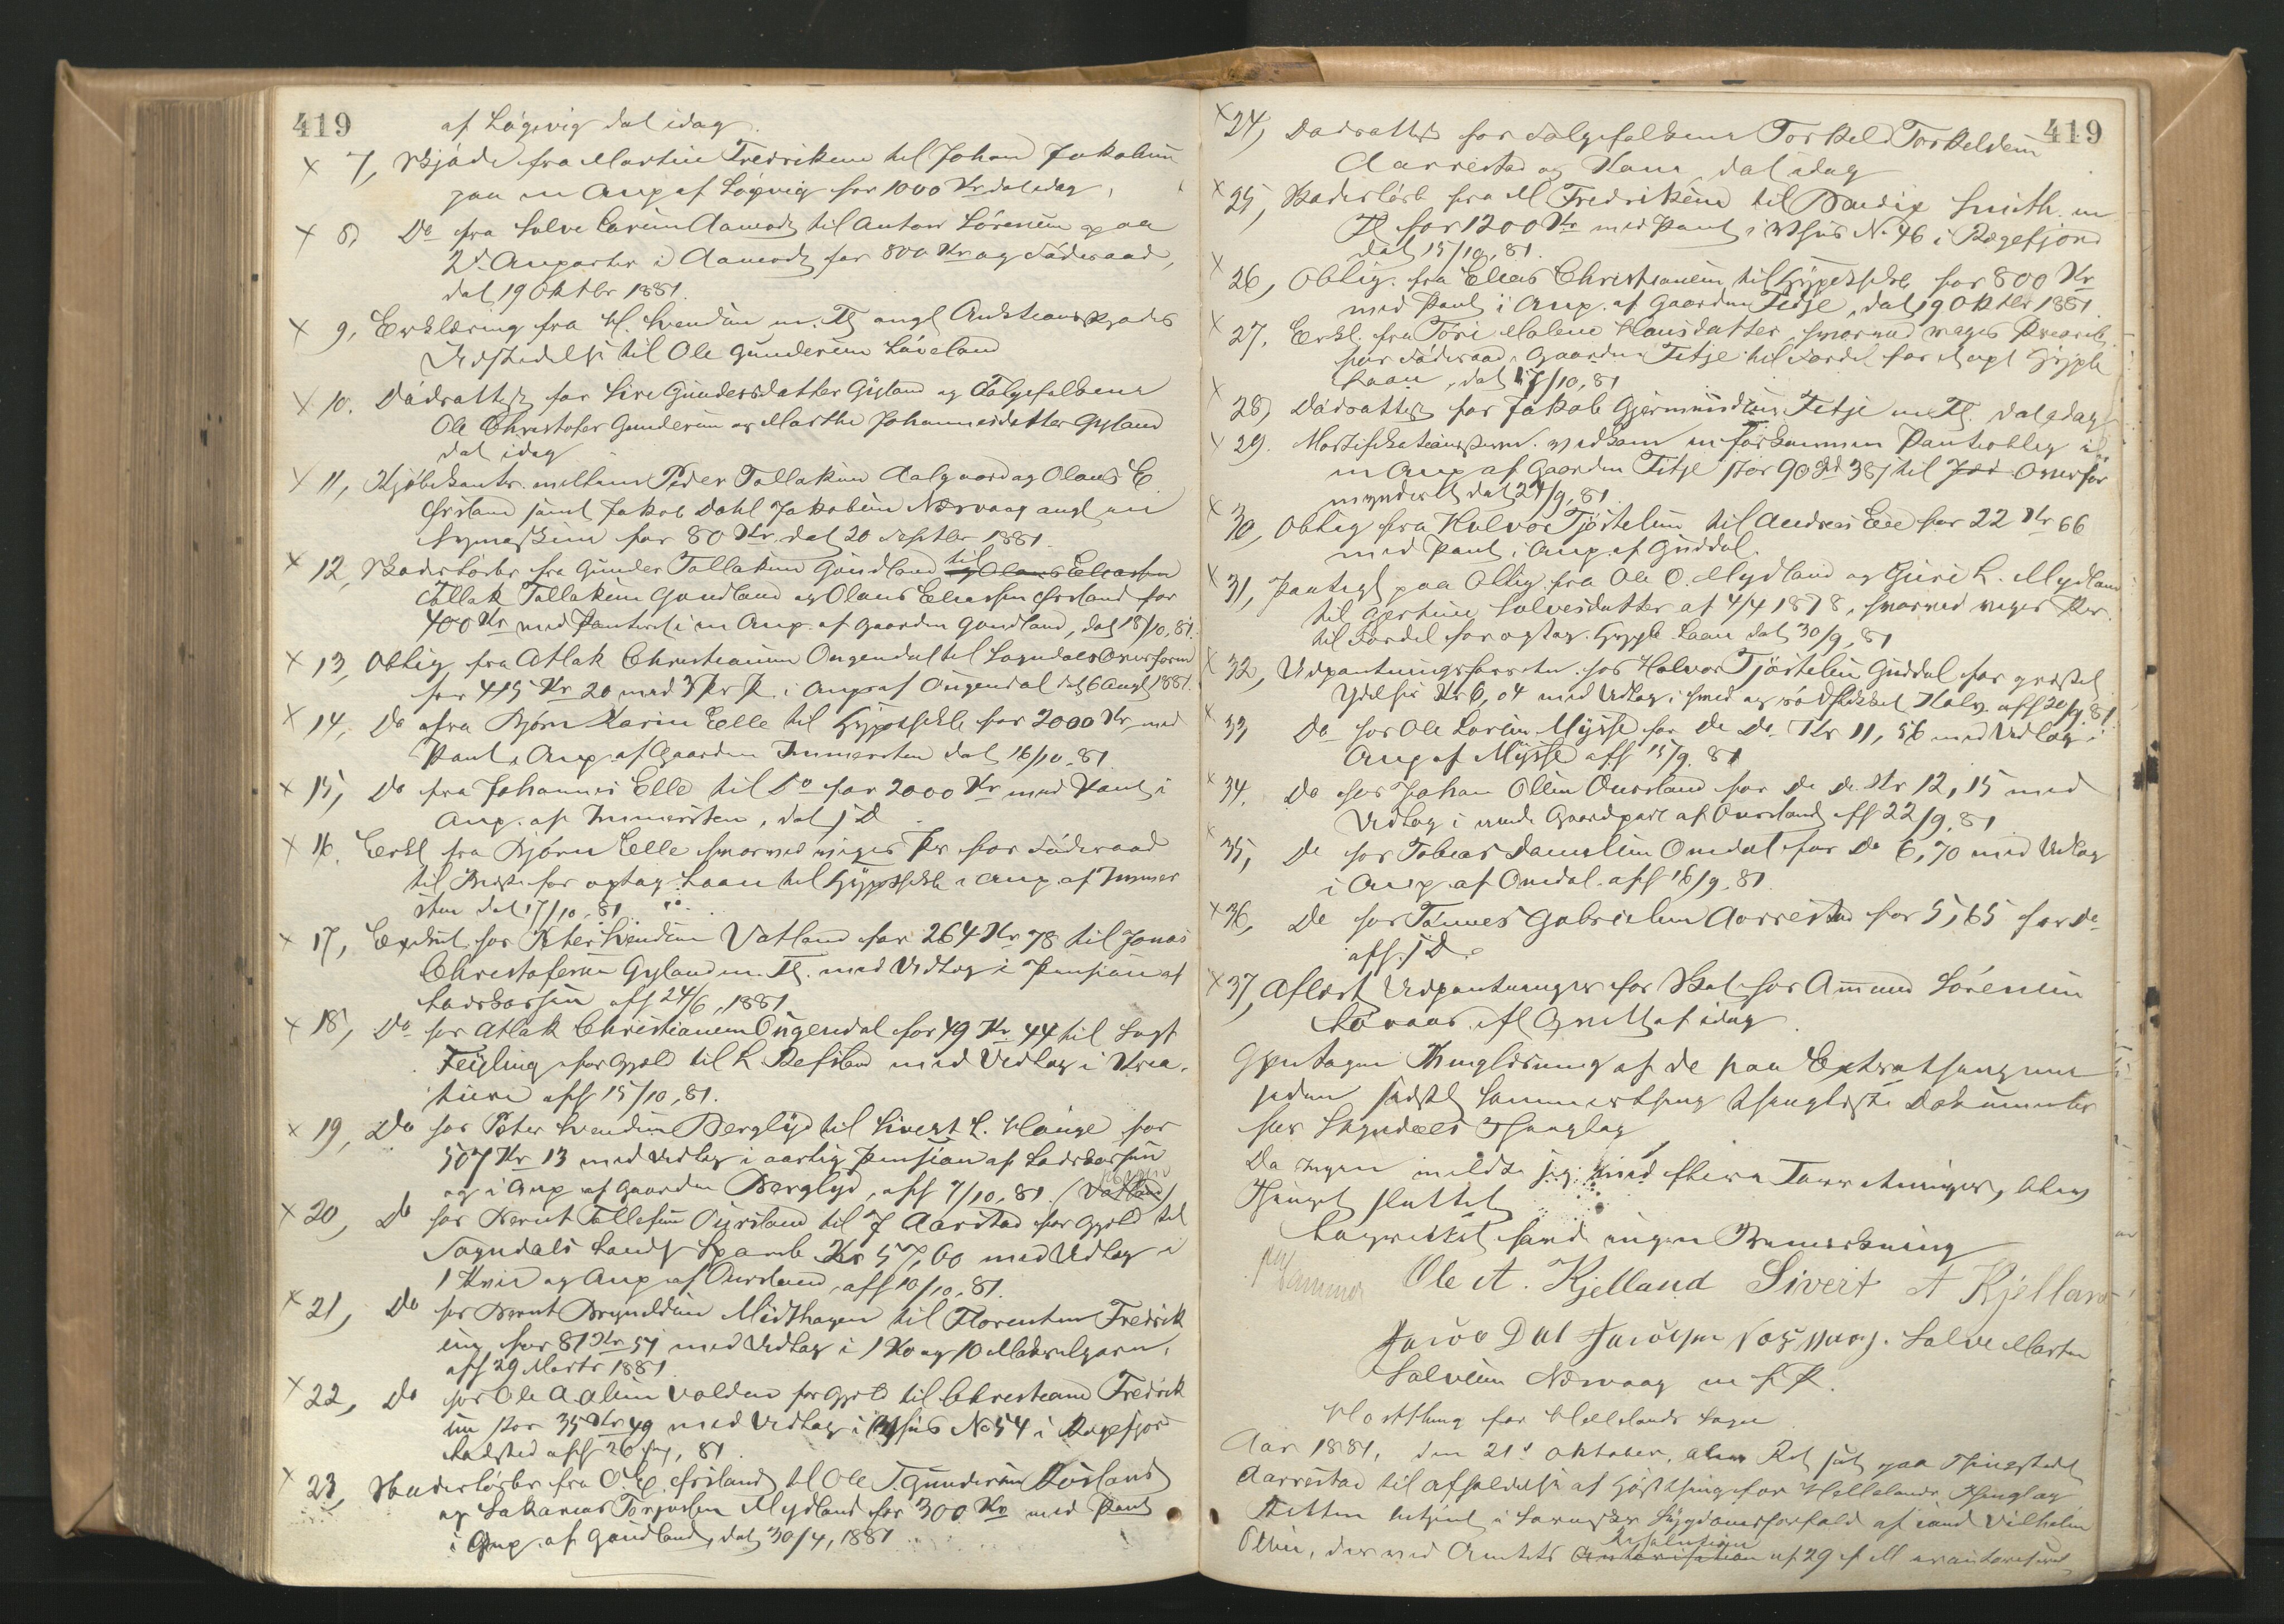 419
af Løgevig dat idag.
× 7, Skjøde fra Martin Fredriksen til Johan Jakobsen
paa en Anp af Løgevig for 1000 Kr dat idag.
× 8, Do fra Salve Aamodt til Anton Sørensen paa
2de Anparter i Aamodt for 800 Kr og Føderaad,
dat 19 Oktbr 1881.
× 9, Erklæring fra Svendsen m. Fl angl Auktionsskjødes
Udstedelse til Ole Gundersen Løveland
× 10. Dødsattest for Siri Gundersdatter Gyland og Følgefolkene
Ole Christofer Gundersen og Marthe Johannesdatter Gyland
dat idag
× 11, Kjøbekontr. mellem Peder Tollaksen Aalgaard og Olaus E.
Ørsland samt Jakob Dahl Jakobsen Nesvaag angl en
Symaskine for 80 Kr. dat 20 Septbr 1881.
× 12, Skadesløsbr fra Gunder Tollaksen Gundland til og Olaus Eliassen
Tollak Tollaksen Gundland og Olaus Eliassen Ørsland for
400 Kr med Panteret i en Anp. af Gaarden Gundland, dat 18/10, 81.
× 13, Oblig fra Atlak Christiansen Ougendal til Sogndals Overform
for 415 Kr 20 med 3 Pr P. i Anp af Ougendal dat 6 Augt 1881.
× 14, Do fra Bjørn Elle til Hypothekb for 2000 Kr, med
Pant i Anp. af Gaarden Immersten dat 16/10, 81
× 15, Do fra Johannes Elle til Do for 2000 Kr med Pant i
Anp. af Immersten, dat s D
× 16. Erkl fra Bjørn Elle hvorved viges Pr for Føderaad
til Bedste for optag. Laan til Hypothekb i Anp af Immer
sten dat 17/10, 81.
× 17, Exekut hos Peter Svendsen Vatland for 264 Kr 78 til Jonas
Christofersen Gyland m. Fl. med Udlæg i Pension af
Landskassen aff 24/6, 1881
× 18, Do hos Atlak Christiansen Ougendal for 49 Kr 44 til Sagf
Feyling for Gjæld til L Refsland med Udlæg i Krea-
turer aff 15/10, 81.
× 19, Do hos Peter Svendsen Berglyd til Sivert L. Hauge for
507 Kr 13 med Udlæg i aarlig Pension af Landskassen
og i Anp af Gaarden Berglyd, aff 7/10, 81. (Vatland)
× 20, Do hos Bernt Tollefsen Oursland til J Aarstad for Gjæld til
Sogndals Lands Spareb. Kr 57,60 med Udlæg i
1 Kvie og Anp af Oursland, aff 10/10, 81.
× 21, Do hos Bernt Brynildsen Midthagen til Florentin Fredrik
sen, for 81 Kr 51 med Udlæg i 1 Ko og 10 Makrelgarn,
aff 29 Marts 1881
× 22, Do hos Ole Aolsen Volden for Gjæld til Christian Fredrik
sen stor 35 Kr 49 med Udlæg i Vhus No 54 i Rægefjord
Ladsted aff 26, 81.
× 23, Skadesløsbr fra O. E. Ørsland til Ole T. Gundersen Røsland
og Sakarias Torjussen Mydland for 300 Kr med Pant
i Anp. af Gundland, dat 30/4, 1881
419
× 24, Dødsattest for Følgefolkene Torkel Torkeldsen
Aarrestad og Kone dat idag
× 25, Skadesløsb fra M Fredriksen til Bendix Smith m
Fl for 1200 Kr med Pant i Vhus No 46 i Rægefjord
dat 15/10, 81.
× 26, Oblig. fra Elias Christiansen til Hypothekb for 800 Kr
med Pant i Anp. af Gaarden Fitje, dat 19 Oktbr 1881.
× 27. Erkl. fra Tori Malene Hansdatter, hvorved viges Prioritet
for Føderaad i Gaarden Fitje til Fordel for et opt Hypth
Laan, dat 17/10, 81
× 28, Dødsattest for Jakob Gjermundsen Fitje m Fl. dat idag
× 29. Mortifikationsdom. vedkom en forkommen Panteoblig i
en Anp af Gaarden Fitje stor 90 Spd 38 s til Overfor
mynderiet dat 24/9, 81.
× 30, Oblig fra Halvor Tjøstelsen til Andreas Eie for 22 Kr 66
med Pant i Anp. af Guddal.
× 31, Pantegt paa Oblig. fra Ole O. Mydland og Guri L. Mydland
til Gjertine Salvesdatter af 4/4 1878, hvorved viges Pr.
til Fordel for optag. Hypth. Laan dat 30/9, 81
× 32, Udpantningsforretn. hos Halvor Tjøstelsen Guddal for
Ydelser Kr 6,04 med Udlæg i hvid og rødflekket Kalv aff 20/9. 81.
× 33 Do hos Ole Larsen Mysse for Do Do. Kr 11,56 med Udlæg i
Anp af Mysse aff 15/9. 81
× 34. Do hos Johan Olsen Oursland for Do Do. Kr 12,15 med
Udlæg i Gaardpart af Oursland aff 22/9, 81
× 35, Do hos Tobias Danielsen Omdal for Do 6,70 med Udlæg
i Anp af Omdal aff 16/9. 81
× 36, Do hos Tønnes Gabrielsen Aarrestad for 5,65 for Do
aff s D.
× 37, Aflæst Udpantninger for Skat hos Ammund Sørensen
Løvaas, af idag.
Gjentagen Thinglæsning af de paa Extrathingene
siden sidste Sommerthing thinglyste Dokumenter
for Sogndals Thinglag
Da ingen meldte sig med flere Forretninger, blev
Thinget sluttet
Lagrettet havde ingen Bemærkning
Ole A. Kjelland Sivert A Kjelland
Jacob Dal Jacobsen Nesvaag. Salve Martin
Salvesen Nesvaag m f P.
Høstthing for Hellelands Sogn
Aar 1881, den 21de Oktober, blev Ret sat paa Thingstedet
Aarrestad til Afholdelse af Høstthing for Hellelands Thinglag
Retten betjent i Sorenskr Sygdomsforfald af cand Vilhelm
Olsen, der ved Amtets Resolution af 29 f M er autoriseret